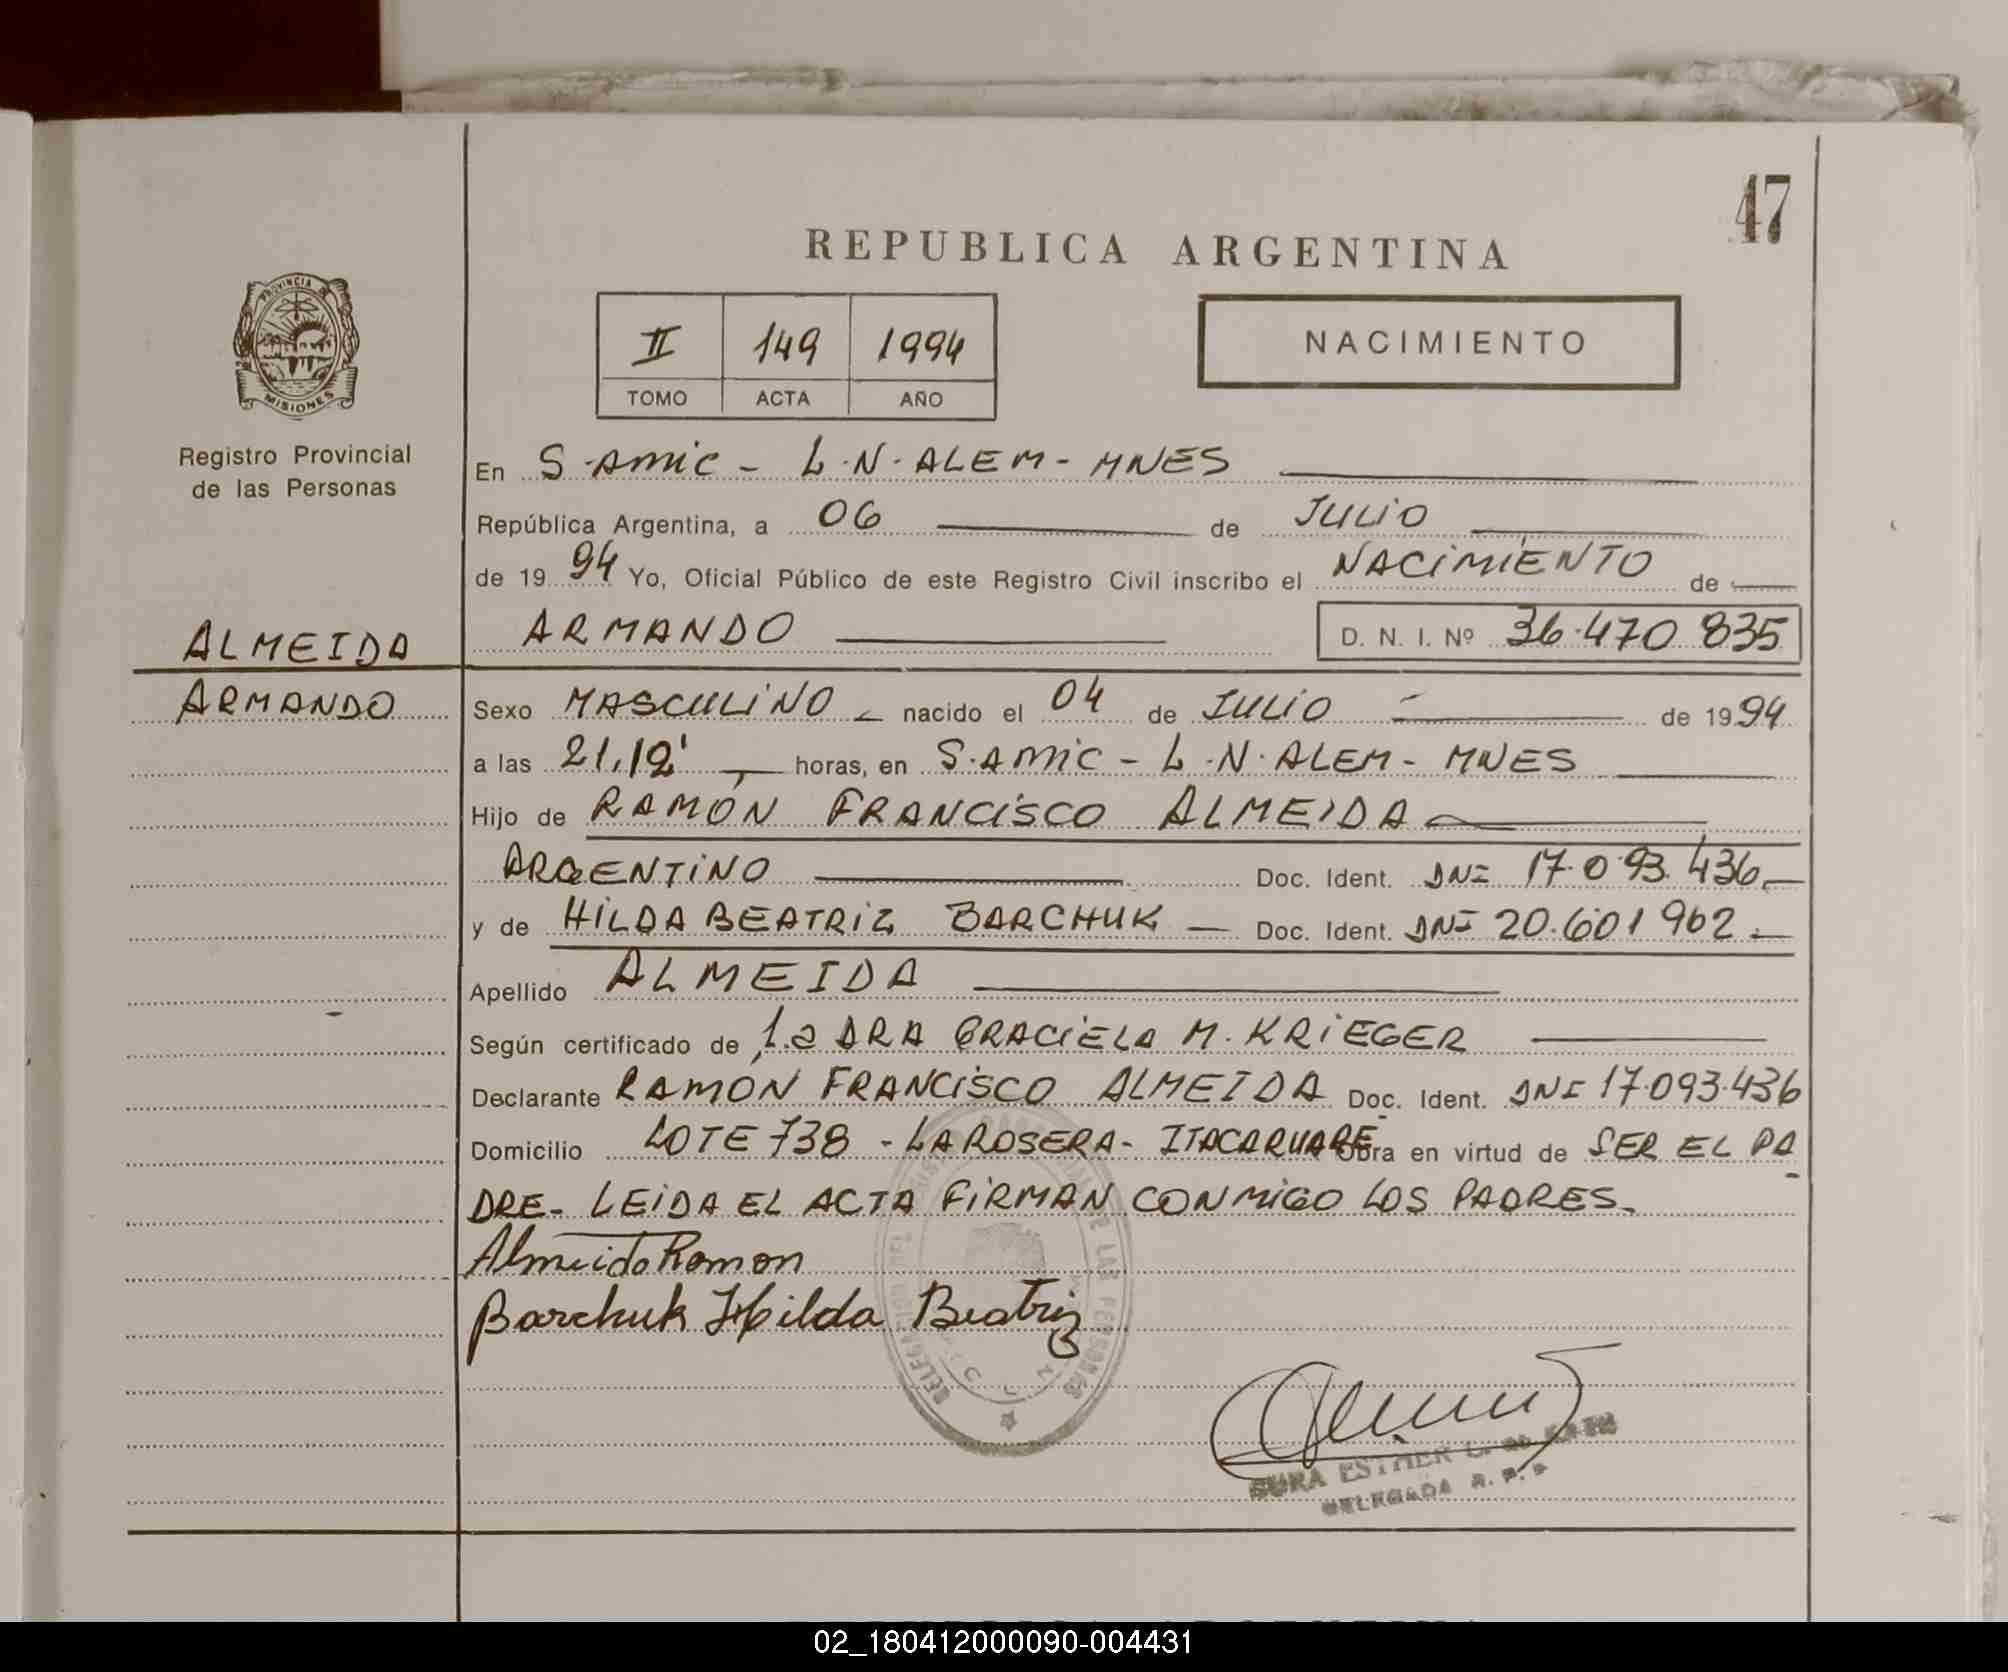 47
REPUBLICA ARGENTINA
PROVINCIA DE
MISIONES
Registro Provincial
de las Personas
II 149 1994
TOMO ACTA AÑO
NACIMIENTO
En S.AMIC - L.N.ALEM - MNES
República Argentina, a 06 de JULIO
de 1994 Yo, Oficial Público de este Registro Civil inscribo el NACIMIENTO de
ALMEIDA
ARMANDO
ARMANDO D. N. I. Nº 36.470.835
Sexo MASCULINO nacido el 04 de JULIO de 1994
a las 21,12' horas, en S.AMIC - L.N.ALEM - MNES
Hijo de RAMÓN FRANCISCO ALMEIDA
ARGENTINO Doc. Ident. DNI 17.093.436
y de HILDA BEATRIZ BARCHUK Doc. Ident. DNI 20.601962
Apellido ALMEIDA
Según certificado de la DRA GRACIELA M. KRIEGER
Declarante RAMÓN FRANCISCO ALMEIDA Doc. Ident. DNI 17.093.436
Domicilio LOTE 738 - LA ROSERA - ITACARUARE Obra en virtud de SER EL PA
DRE - LEIDA EL ACTA FIRMAN CONMIGO LOS PADRES.
Almeida Ramon
Barchuk Hilda Beatriz
DE LAS PERSONAS
ESTHER
DELEGADA R. P. P
02_180412000090-004431